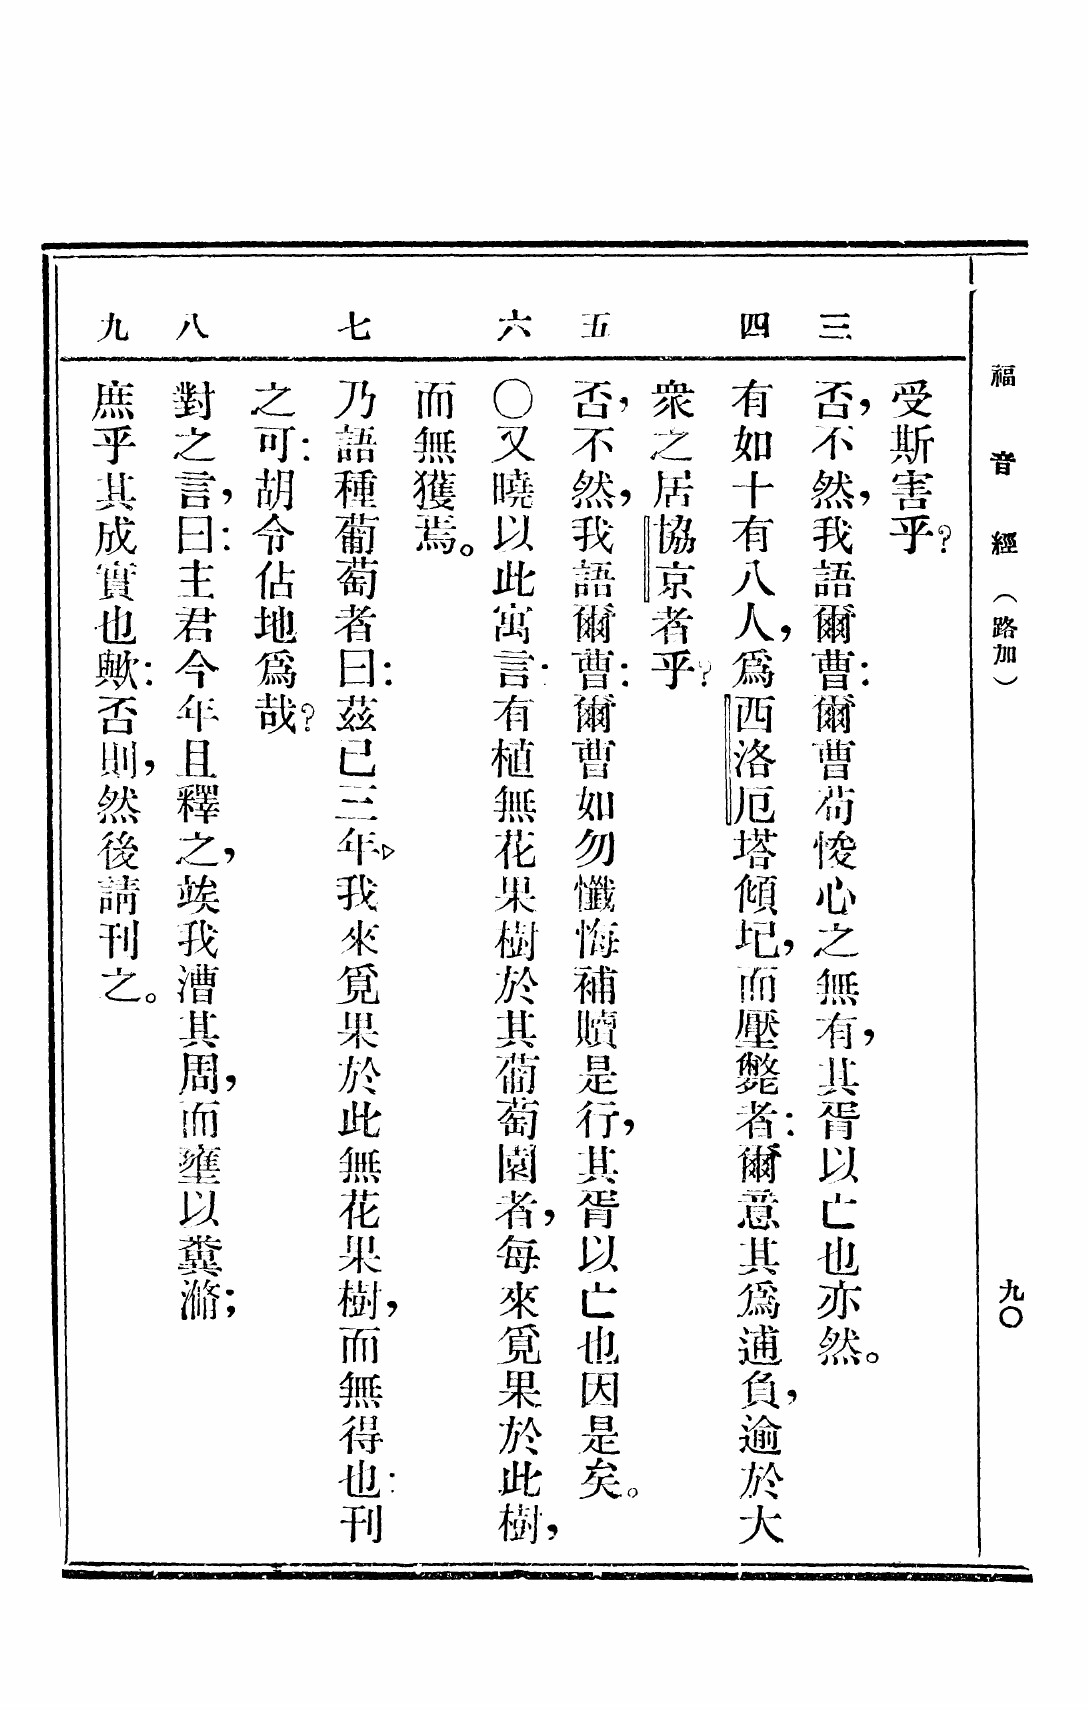 福音經（路加）
九〇
受斯害乎？
三
否，不然，我語爾曹：爾曹苟悛心之無有，其胥以亡也亦然。
四
有如十有八人，爲西洛厄塔傾圮，而壓斃者：爾意其爲逋負，逾於大
衆之居協京者乎？
五
否，不然，我語爾曹：爾曹如勿懺悔補贖是行，其胥以亡也因是矣。
六
〇又曉以此寓言：有植無花果樹於其葡萄園者，每來覓果於此樹，
而無獲焉。
七
乃語種葡萄者曰：茲已三年，我來覓果於此無花果樹，而無得也：刊
之可：胡令佔地爲哉？
八
對之言，曰：主君今年且釋之，竢我漕其周，而壅以糞滫；
九
庶乎其成實也歟：否則，然後請刊之。